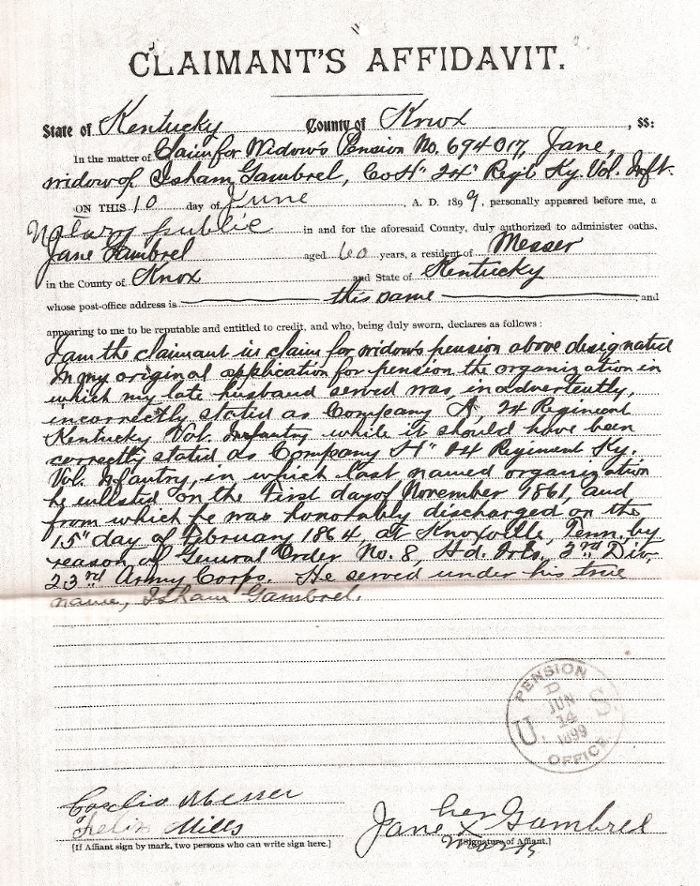 CLAIMANT'S AFFIDAVIT.
State of Kentucky County of Knox, SS:
In the matter of Claim for Widow's Pension No. 694017, Jane,
widow of Isham Gambrel, Co "H" 24" Reg't Ky. Vol. Inft.
ON THIS 10 day of June, A. D. 1899, personally appeared before me, a
Notary public in and for the aforesaid County, duly authorized to administer oaths.
Jane Gambrel aged 60 years, a resident of Messer
in the County of Knox and State of Kentucky
whose post-office address is this same and
appearing to me to be reputable and entitled to credit, and who, being duly sworn, declares as follows:
I am the claimant in claim for widow's pension above designated
In my original application for pension the organization in
which my late husband served was, inadvertently,
incorrectly stated as Company "A", 24 Regiment
Kentucky Vol. Infantry while it should have been
correctly stated as Company "H" 24 Regiment Ky.
Vol. Infantry, in which last named organization
he enlisted on the first day of November 1861, and
from which he was honorably discharged on the
15" day of February 1864, at Knoxville, Tenn. by
reason of General Order No. 8, Hd. Qrts., 3rd Div.
23rd Army Corps. He served under his true
name, Isham Gambrel.
PENSION
JUN
14
1899
U. S.
OFFICE
Messer
Felix Mills
[If Affiant sign by mark, two persons who can write sign here.]
her
Jane X Gambrel
mark
[Signature of Affiant.]